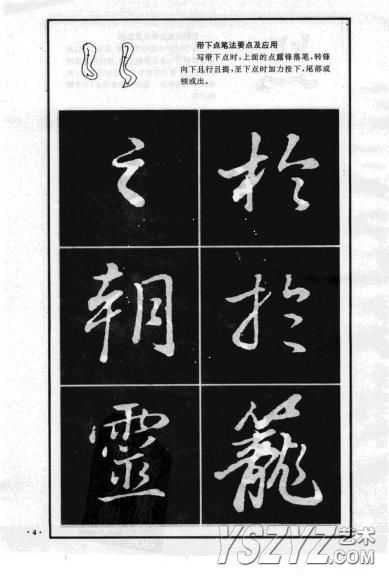 带下点笔法要点及应用
写带下点时,上面的点露锋落笔,转锋
向下且行且提,至下点时加力按下,尾部或
顿或出。
於
於
籠
之
朝
靈
·4·
YSZYZ艺术
.COM